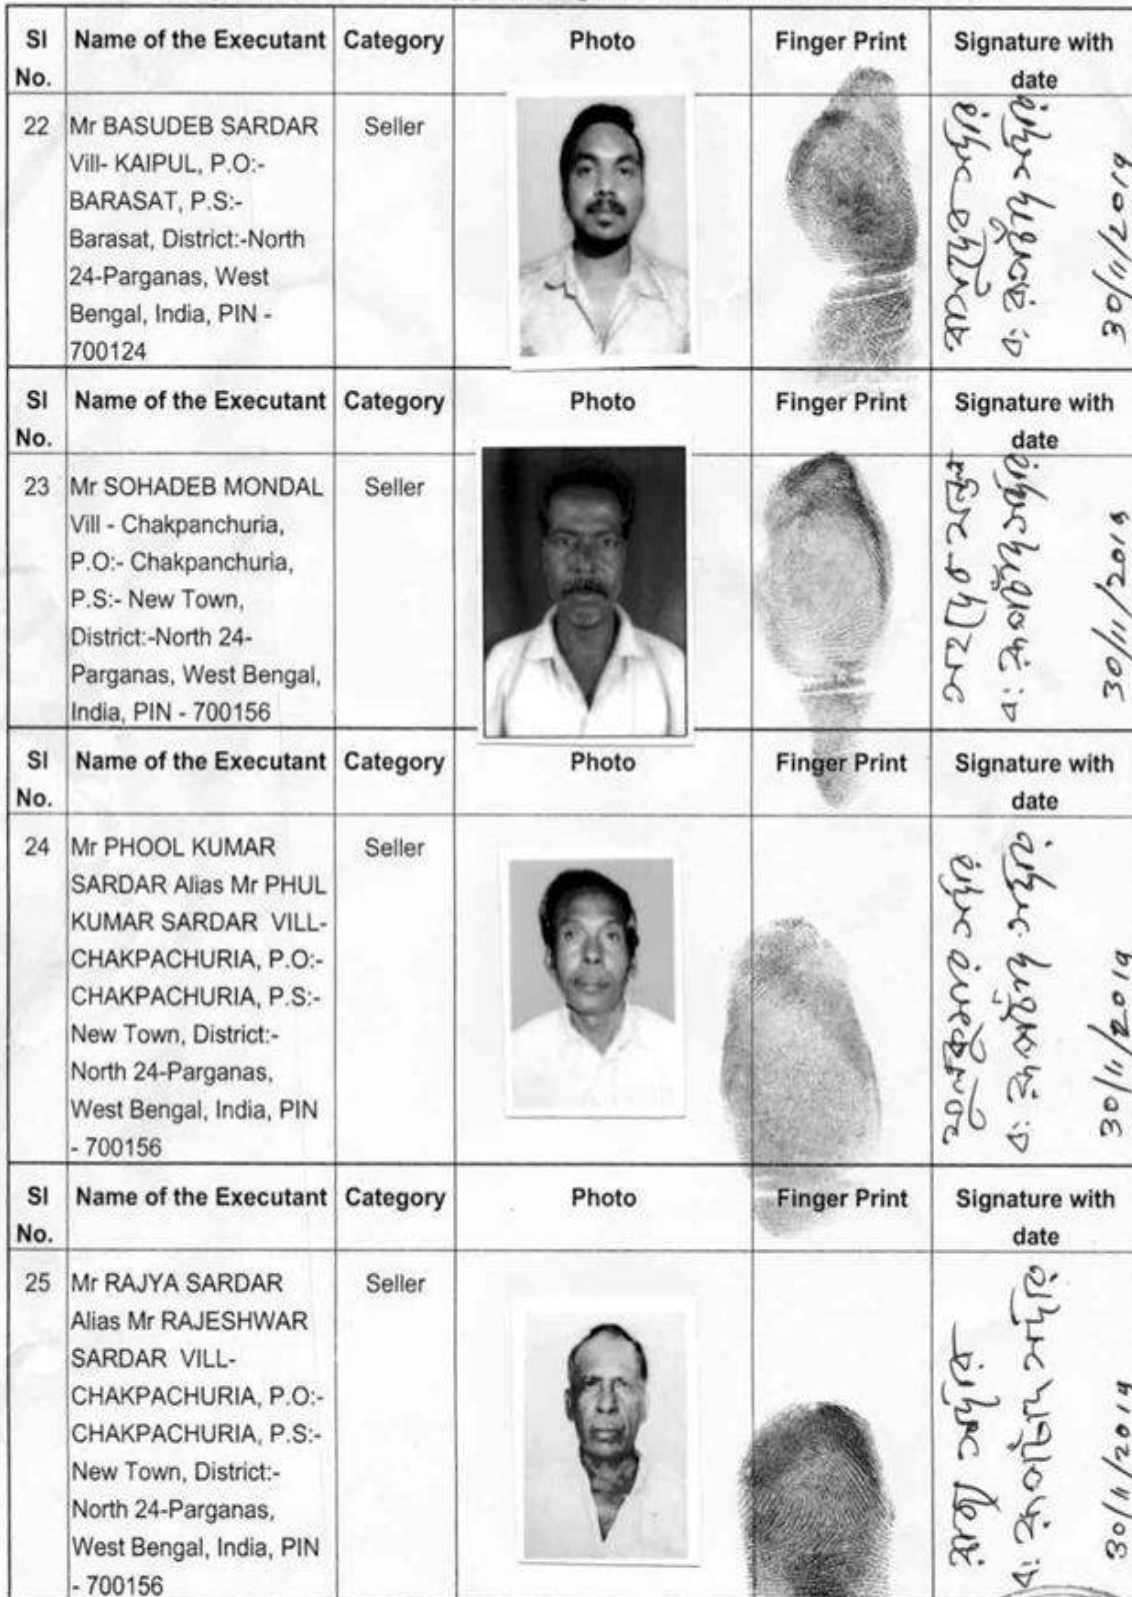 Sl No.
Name of the Executant
Category
Photo
Finger Print
Signature with date
22
Mr BASUDEB SARDAR
Vill- KAIPUL, P.O:-
BARASAT, P.S:-
Barasat, District:-North
24-Parganas, West
Bengal, India, PIN -
700124
Seller
30/11/2019
Sl No.
Name of the Executant
Category
Photo
Finger Print
Signature with date
23
Mr SOHADEB MONDAL
Vill - Chakpanchuria,
P.O:- Chakpanchuria,
P.S:- New Town,
District:-North 24-
Parganas, West Bengal,
India, PIN - 700156
Seller
30/11/2019
Sl No.
Name of the Executant
Category
Photo
Finger Print
Signature with date
24
Mr PHOOL KUMAR
SARDAR Alias Mr PHUL
KUMAR SARDAR VILL-
CHAKPACHURIA, P.O:-
CHAKPACHURIA, P.S:-
New Town, District:-
North 24-Parganas,
West Bengal, India, PIN
- 700156
Seller
30/11/2019
Sl No.
Name of the Executant
Category
Photo
Finger Print
Signature with date
25
Mr RAJYA SARDAR
Alias Mr RAJESHWAR
SARDAR VILL-
CHAKPACHURIA, P.O:-
CHAKPACHURIA, P.S:-
New Town, District:-
North 24-Parganas,
West Bengal, India, PIN
- 700156
Seller
30/11/2019